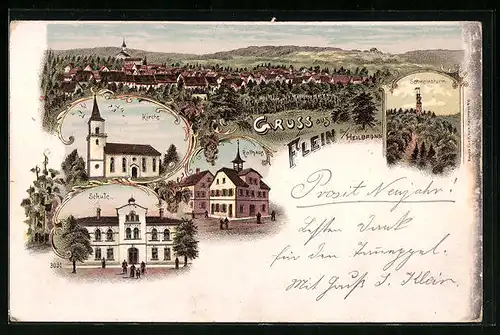 Schweinsturm
GRUSS aus
FLEIN
b/HEILBRONN
Kirche
Rathaus
Schule
3031
Prosit Neujahr!
Besten Dank
für den
Mit Gruß S. Klein